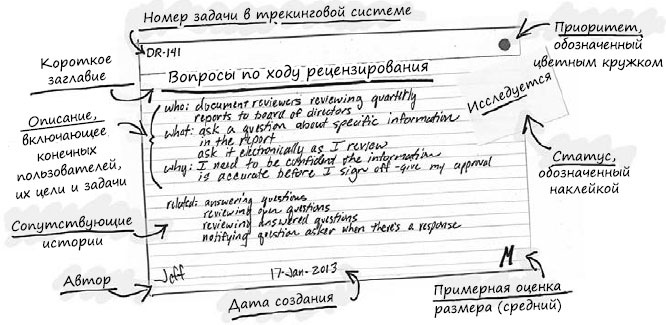 Номер задачи в трекинговой системе
DR-141
Короткое
заглавие
Вопросы по ходу рецензирования
Приоритет,
обозначенный
цветным кружком
Исследуется
Описание,
включающее
конечных
пользователей,
их цели и задачи
who: document reviewers reviewing quarterly
reports to board of directors
what: ask a question about specific information
in the report
ask it electronically as I review
why: I need to be confident the information
is accurate before I sign off - give my approval
Статус,
обозначенный
наклейкой
Сопутствующие
истории
related: answering questions
reviewing own questions
reviewing answered questions
notifying question asker when there's a response
Автор
Jeff
17-Jan-2013
M
Дата создания
Примерная оценка
размера (средний)